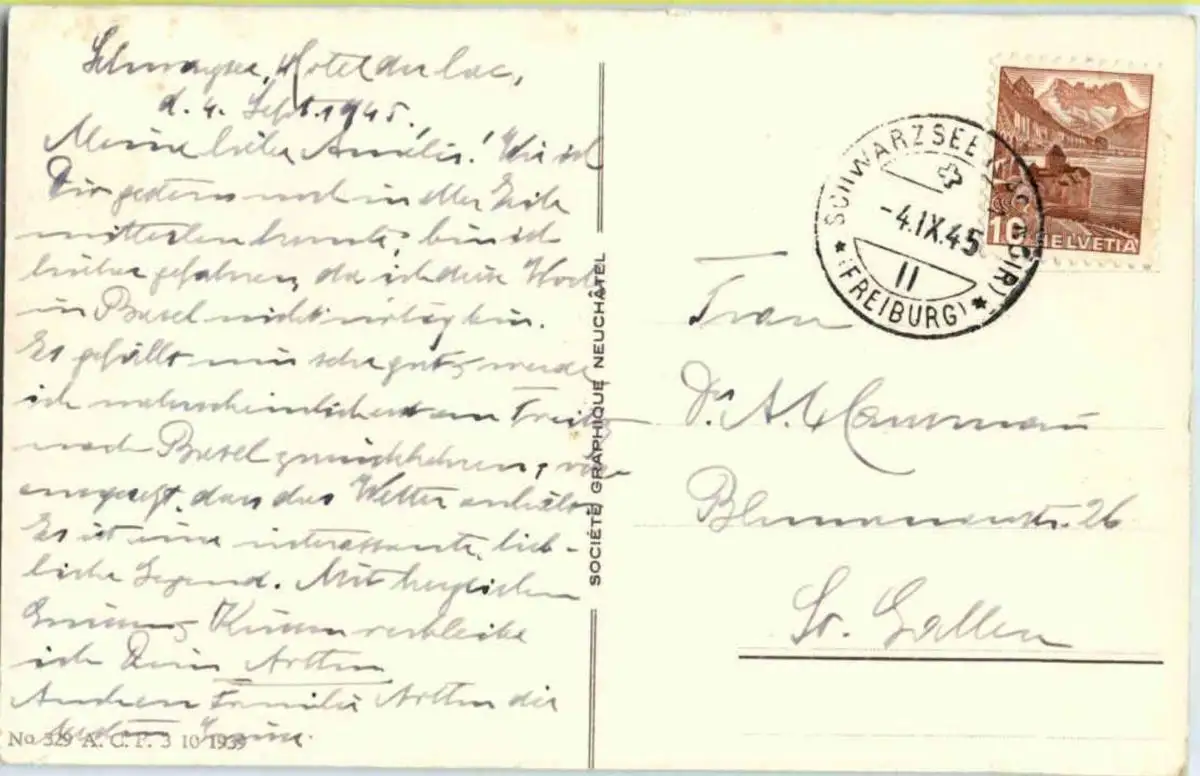 Schwarzsee, Hotel du Lac,
d. 4. Sept. 1945.
Meine liebe Amélie! Wie ich
Dir gestern noch in aller Eile
mitteilen konnte, bin ich
hieher gefahren, da ich diese Woche
in Basel nicht nötig bin.
Es gefällt mir sehr gut & werde
ich wahrscheinlich erst am Freitag
nach Basel zurückkehren, voraus-
gesetzt, dass das Wetter anhält.
Es ist eine interessante, lieb-
liche Gegend. Mit herzlichen
Grüssen & Küssen verbleibe
ich Dein Arthur
Familie Arthur die
No 529 A. C. F. 3 10 1939
SOCIÉTÉ GRAPHIQUE NEUCHÂTEL
SCHWARZSEE
-4.IX.45
II
(FREIBURG)
10 HELVETIA
Frau
Dr. A.
Blumenaustr. 26
St. Gallen